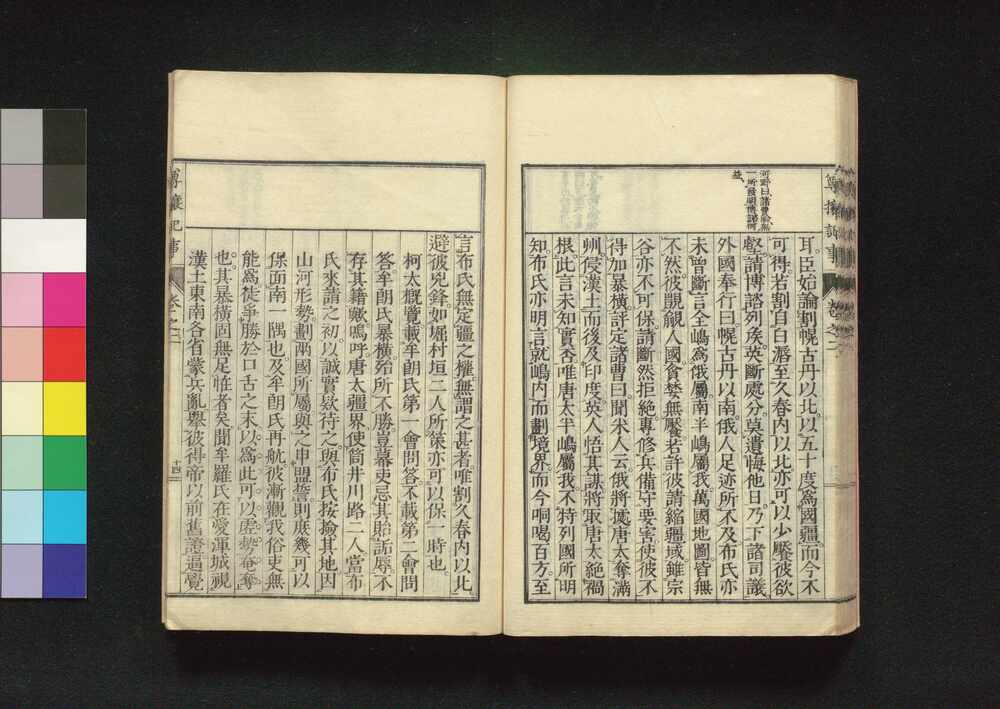 尊攘紀事
卷之二
河野曰諸曹紛無
一所發明徳識何
益
耳。臣始論割幌古丹以北以五十度爲國疆而今不
可得若割自白潺至久春内以北亦可以少饜彼欲
壑請博諮列矦英斷處分莫遺悔他日乃下諸司議
外國奉行曰幌古丹以南俄人足迹所不及布氏亦
未曾斷言全嶋爲俄屬南半嶋屬我萬國地圖皆無
不然彼覬覦人國貪婪無饜若許彼請縮疆域雖宗
谷亦不可保請斷然拒絶專修兵備守要害使彼不
得加暴橫評定諸曹曰聞米人云俄將據唐太奪滿
州侵漢土而後及印度英人悟其謀將取唐太絶禍
根此言未知實否唯唐太半嶋屬我不特列國所明
知布氏亦明言就嶋内而劃境界而今恫喝百方至
言布氏無定疆之權無謂之甚者唯割久春内以北
避彼兇鋒如堀村垣二人所策亦可以保一時也。
柯太概覽載牟朗氏第一會問答不載第二會問
答牟朗氏暴橫殆所不勝豈幕吏忌其貽詬辱不
存其籍歟嗚呼唐太疆界使筒井川路二人當布
氏來請之初以誠實欵待之與布氏按撿其地因
山河形勢劃兩國所屬與之申盟誓則庶幾可以
保面南一隅也及牟朗氏再航彼漸觀我俗吏無
能爲徒爭勝於口舌之末以爲此可以虚勢奄奪
也其暴橫固無足怪者矣聞牟羅氏在愛渾城視
漢土東南各省蒙兵亂擧彼得帝以前舊證逼覺
尊攘紀事
卷之二
十四